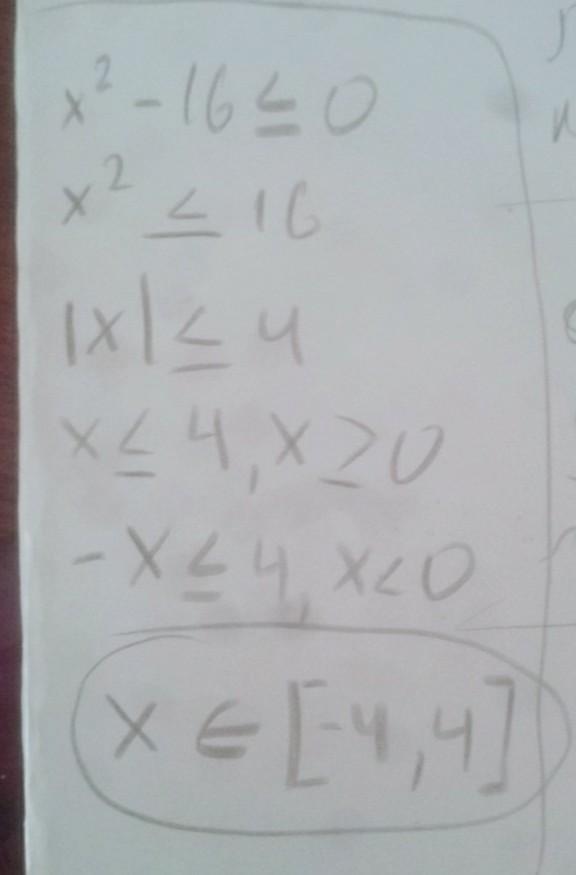 x² - 16 ≤ 0
x² ≤ 16
|x| ≤ 4
x ≤ 4, x ≥ 0
-x ≤ 4, x < 0
x ∈ [-4, 4]